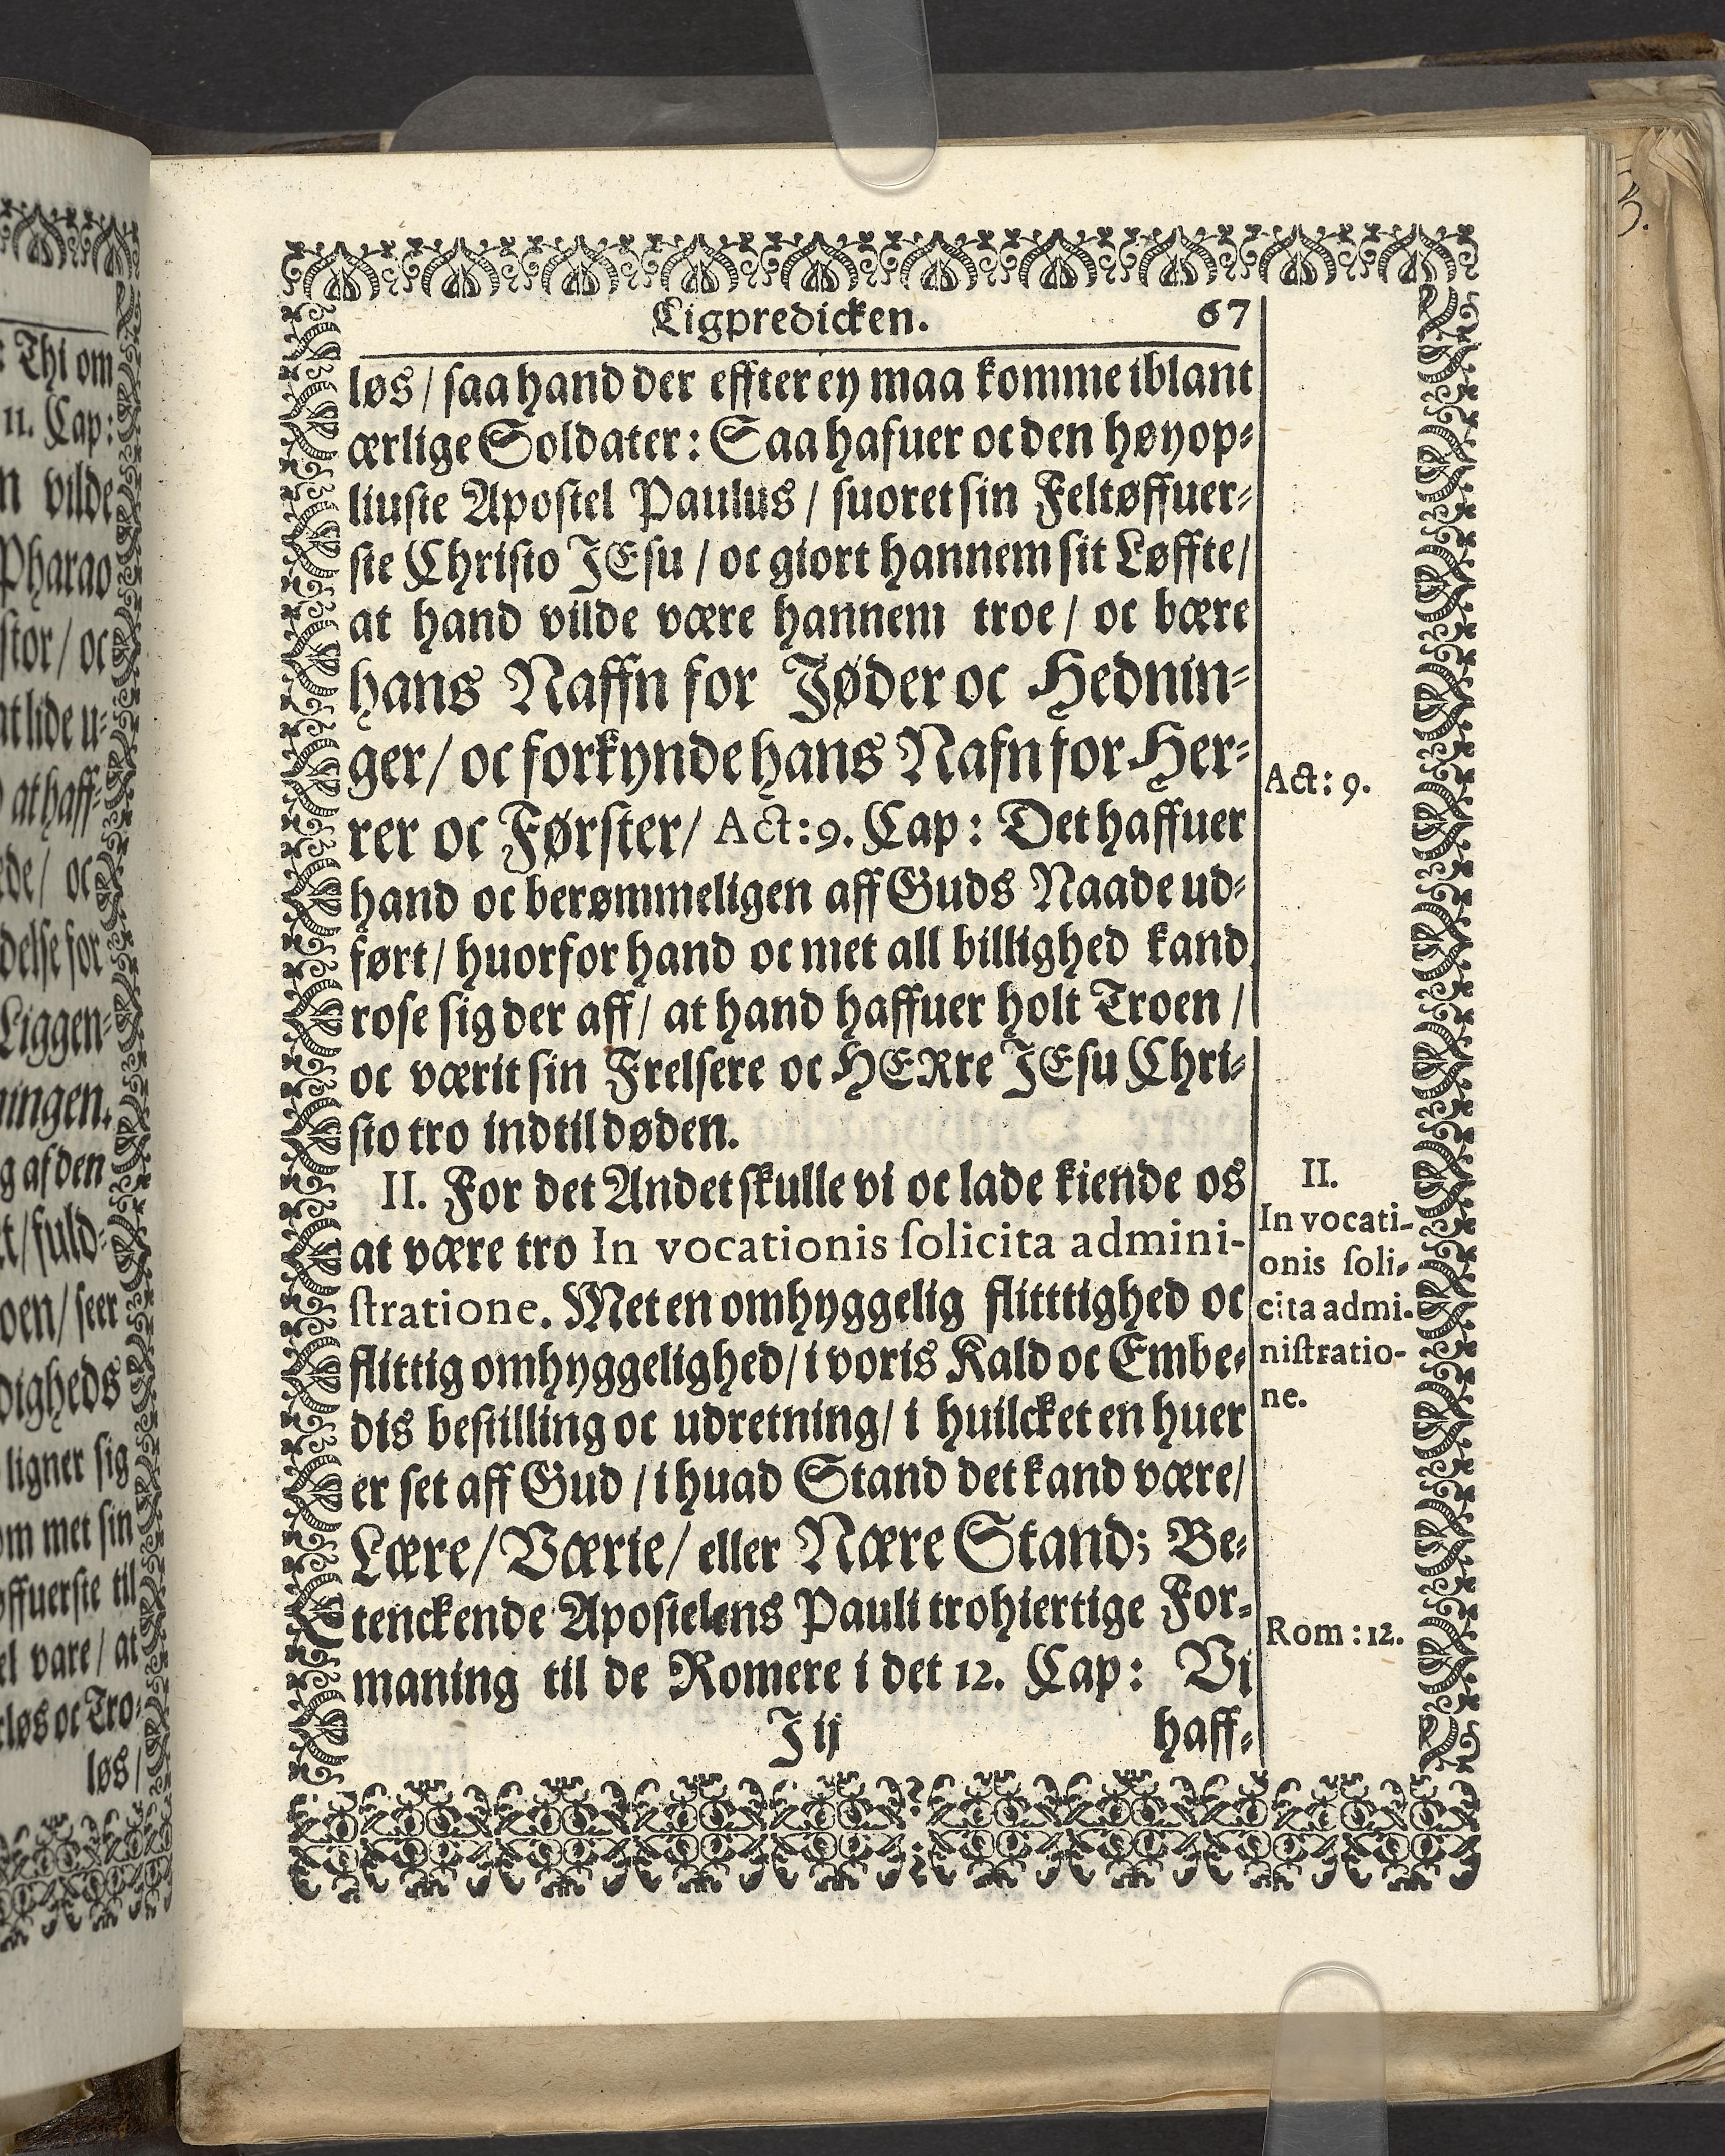 : Thi om
11. Cap:
n vilde
Pharao
stor / oc
at lide u-
at haff-
de / oc
delse for
Liggen-
ningen.
g af den
t / fuld-
oen / seer
digheds
ligner sig
om met sin
øffuerste til
el vare / at
rløs oc Tro-
løs /
Ligpredicken. 67
løs / saa hand der effter ey maa komme iblant
ærlige Soldater: Saa hafuer oc den høyop-
liuste Apostel Paulus / suoret sin Feltøffuer-
ste Christo JEsu / oc giort hannem sit Løffte /
at hand vilde være hannem troe / oc bære
hans Naffn for Jøder oc Hednin-
ger / oc forkynde hans Nafn for Her-
rer oc Førster / Act: 9. Cap: Det haffuer
hand oc berømmeligen aff Guds Naade ud-
ført / huorfor hand oc met all billighed kand
rose sig der aff / at hand haffuer holt Troen /
oc værit sin Frelsere oc HERre JEsu Chri-
sto tro indtil døden.
II. For det Andet skulle vi oc lade kiende os
at være tro In vocationis ſolicita admini-
ſtratione. Met en omhyggelig flitttighed oc
flittig omhyggelighed / i voris Kald oc Embe-
dis bestilling oc udretning / i huilcket en huer
er set aff Gud / i huad Stand det kand være /
Lære / Værie / eller Nære Stand; Be-
tenckende Apostelens Pauli trohiertige For-
maning til de Romere i det 12. Cap: Vi
J ij haff-
Act: 9.
II.
In vocati-
onis ſoli-
cita admi-
niſtratio-
ne.
Rom: 12.
3.